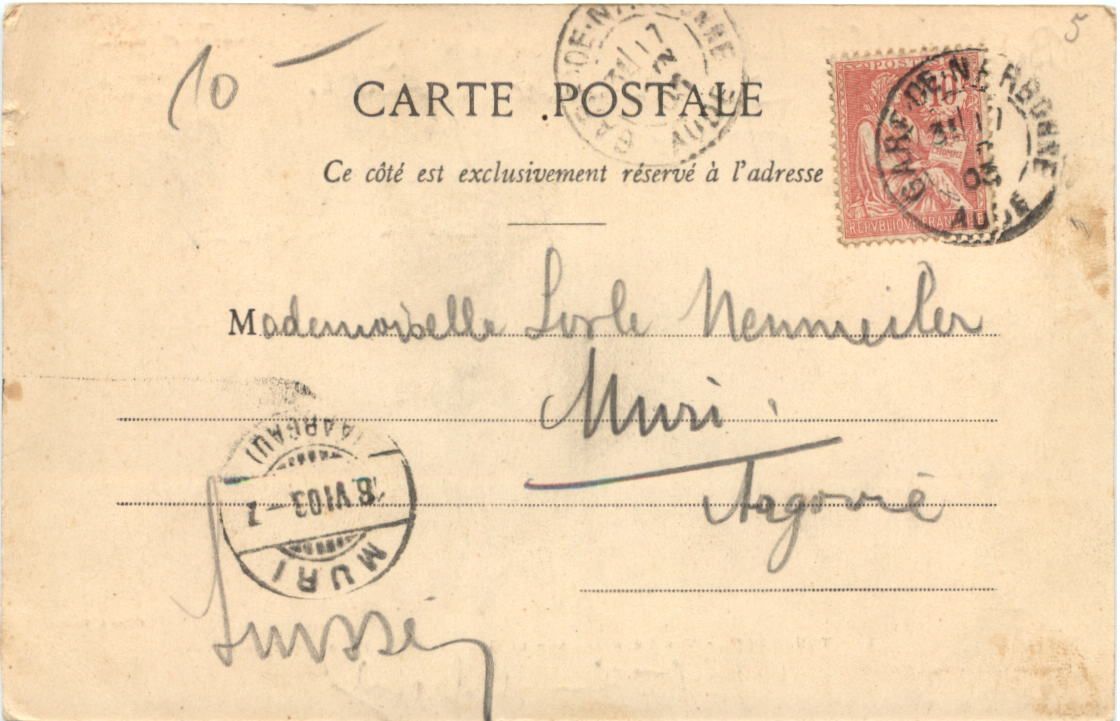 10
5
CARTE POSTALE
GARE-DE-NARBONNE
AUDE
POSTES
10
REPUBLIQUE FRANÇAISE
GARE-DE-NARBONNE
17
03
AUDE
Ce côté est exclusivement réservé à l'adresse
Mademoiselle Neumeiler
Muri
Argovie
(AARGAU)
VI 03 - 7
MURI
Suisse